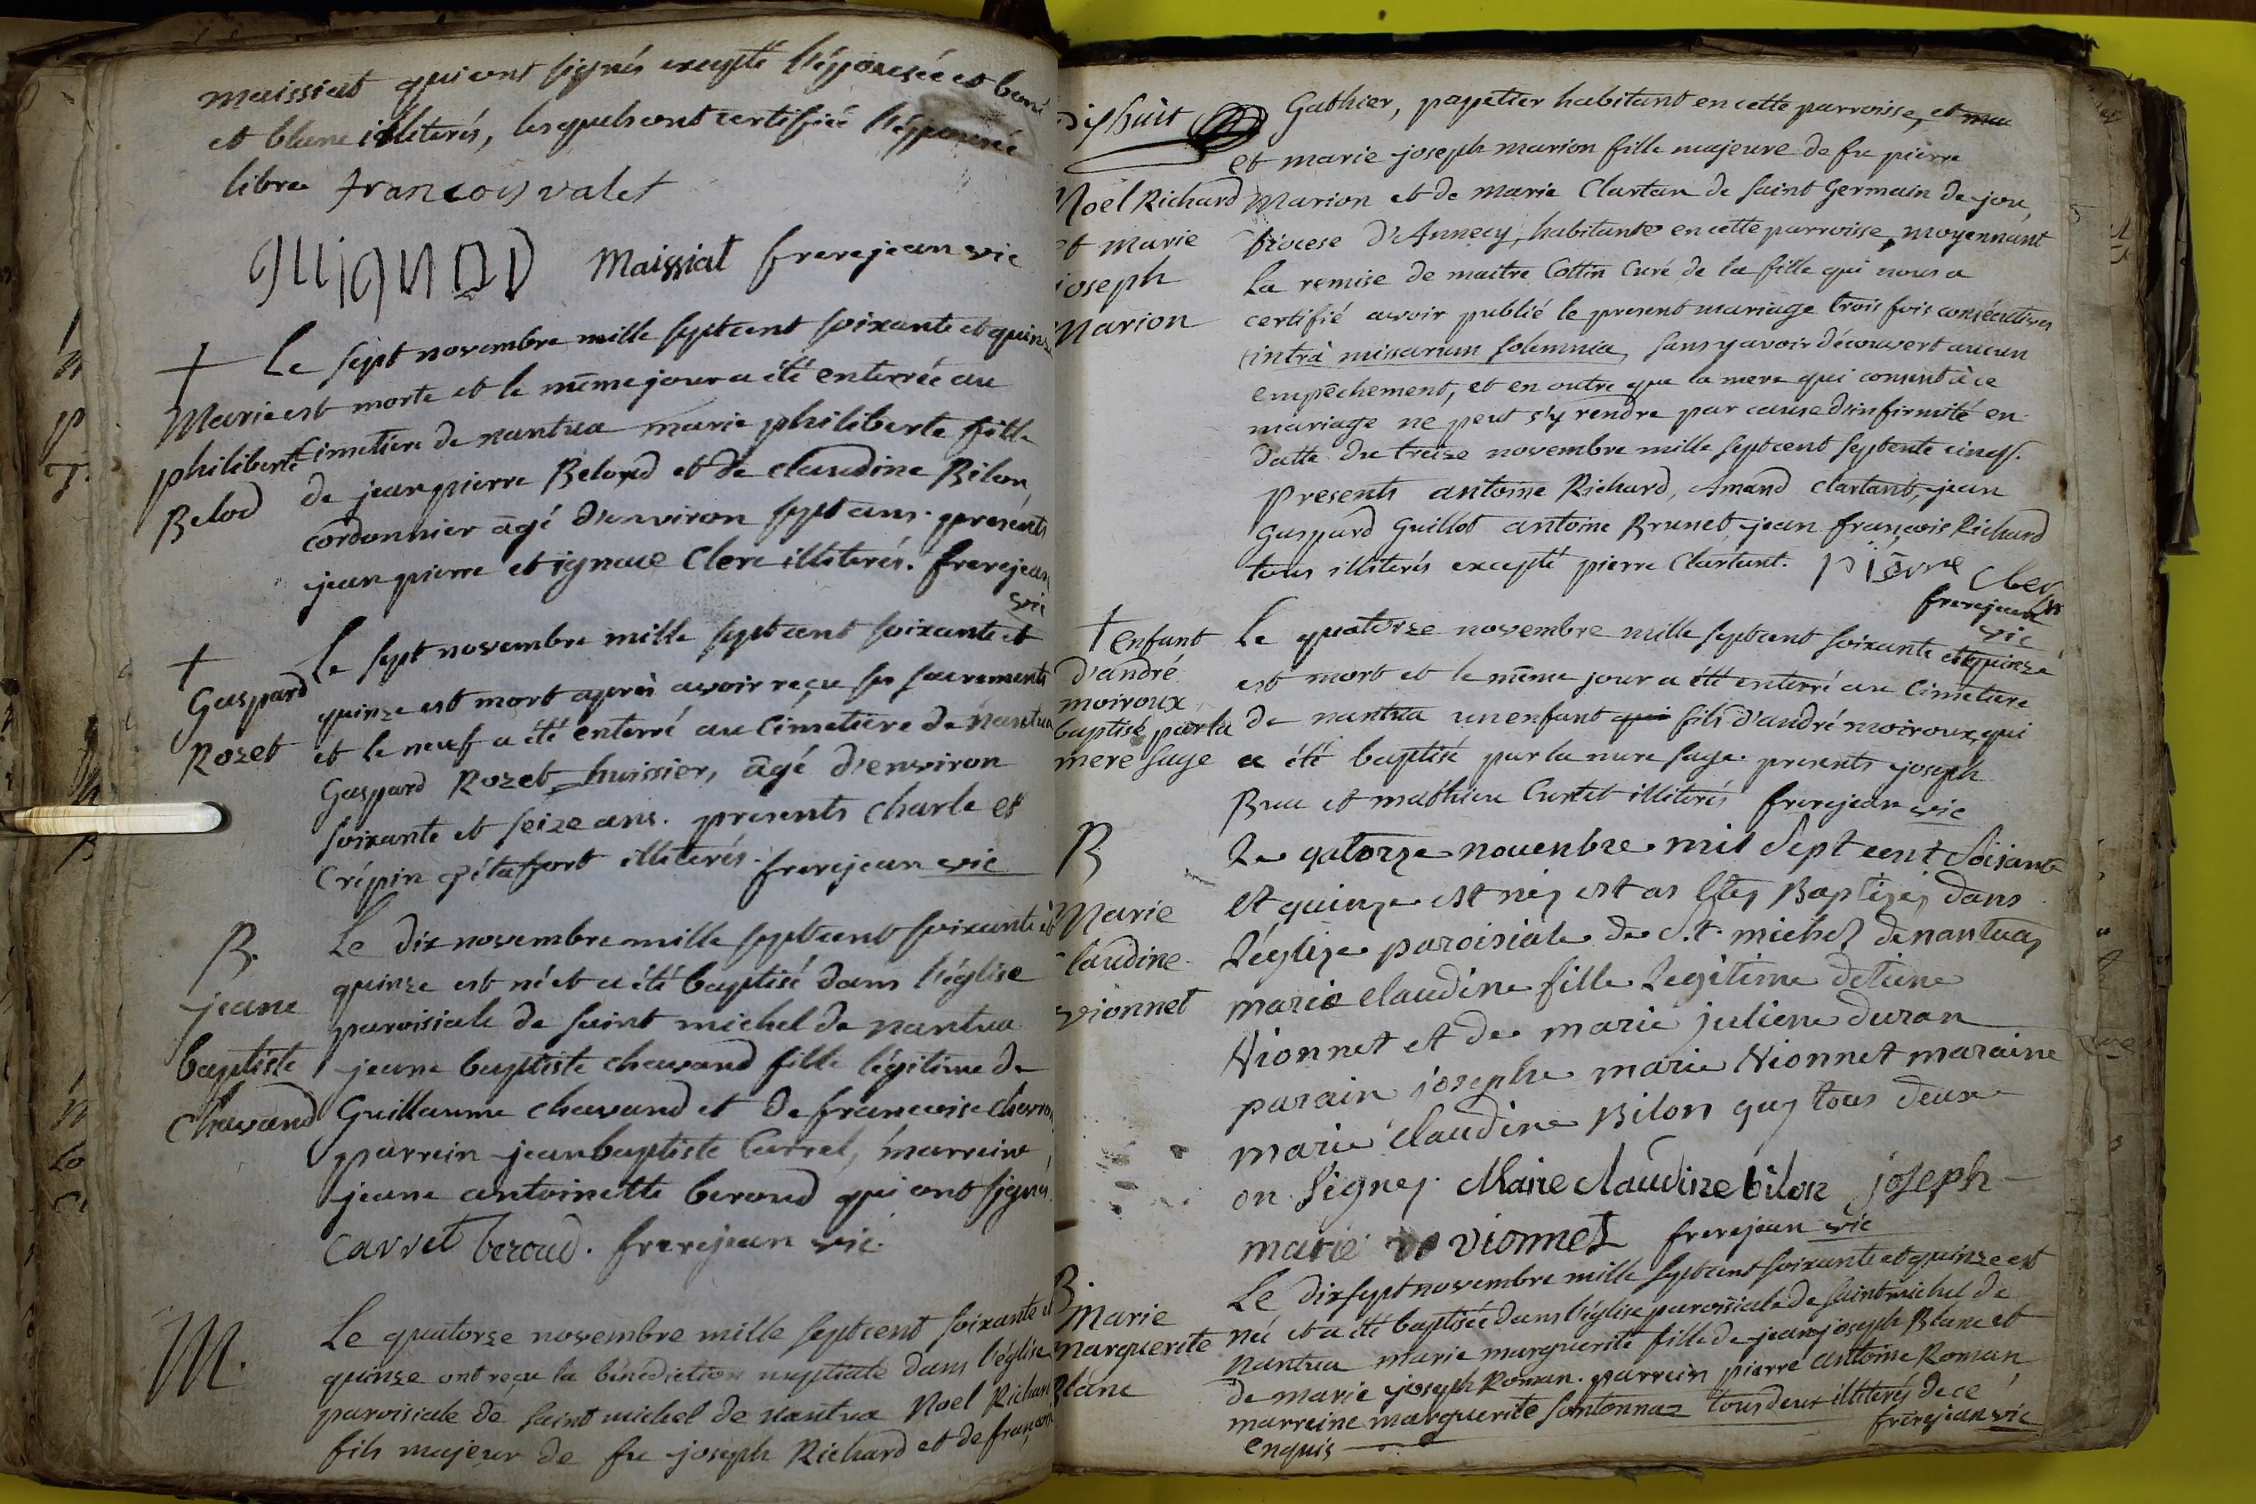 maissiat qui ont signés excepté l'épousée et
et blanc illiterés, lesquels ont certifiée l'épousée
libre francois valet
Maissiat frerejean vic
+ Le sept novembre mille sept cent soixante et quinze
est morte et le même jour a été enterrée au
cimetiere de nantua marie philiberte fille
de jean pierre Belod et de claudine Bilon,
cordonnier âgé d'environ sept ans. présents
jean pierre et ignace Clerc illiterés. frerejean
vic
Marie
philiberte
Belod
+ Le sept novembre mille sept cent soixante et
quinze est mort après avoir reçu ses sacrements
et le neuf a été enterré au cimetiere de nantua
Gaspard Rozet huissier, âgé d'environ
soixante et seize ans. presents charle et
Crépin pétaffort illiterés. frerejean vic
Gaspard
Rozet
B.
jeane
baptiste
Chavand
Le dix novembre mille sept cent soixante et
quinze est né et a été baptisé dans l'église
paroisiale de saint michel de nantua
jeane baptiste chavand fille légitime de
Guillaume chavand et de francoise
parrein jean baptiste Carret, marreine
jeane antoinette beroud qui ont signés.
carret beroud. frerejean vic
M.
Le quatorze novembre mille sept cent soixante et
quinze ont reçu la bénédiction nuptiale dans l'église
paroisiale de saint michel de nantua Noel Richard
fils majeur de fu joseph Richard et de françoise
dixhuit
Noël Richard
et marie
joseph
Marion
Gathier, papetier habitant en cette parroisse, et
et marie joseph marion fille majeure de fu pierre
Marion et de marie Clartan de saint Germain de jou,
diocese d'Annecy, habitante en cette parroisse, moyennant
la remise de maitre Cottin Curé de la fille qui nous a
certifié avoir publié le present mariage trois fois consécutives
intrà missarum solemnia, sans y avoir découvert aucun
empêchement, et en outre que la mere qui consent à ce
mariage ne peut s'y rendre par cause d'infirmité en
datte du treize novembre mille sept cent septente cinq.
presents antoine Richard, Amand clartant, jean
Gaspard Guillot antoine Brunet jean françois Richard
tous illiterés excepté pierre Clartant. pierre
frerejean
vic
+ enfant
d'andré
moiroux
baptisé par la
mere sage
Le quatorze novembre mille sept cent soixante et quinze
est mort et le même jour a été enterré au Cimetiere
de nantua un enfant qui fils d'andré moiroux, qui
a été baptisé par la mere sage. presents joseph
Brue et mathieu Curtet illiterés frerejean vic
B
Marie
claudine
vionnet
Le qatorze nouenbre mil sept cent soisante
et quinze est néz est as étéz Baptizéz dans
l'églize paroisiale de S.t michel de nantuaz
marie claudine fille legitime detiene
Vionnet et de marie juliene duran
parain josephe marie Vionnet maraine
marie claudine Bilon quy tous deux
on signez. Marie claudine bilon joseph
marie vionnet frerejean vic
B.
Marie
marguerite
blanc
Le dixsept novembre mille sept cent soixante et quinze est
née et a été baptisée dans l'église paroissiale de saint michel de
nantua marie marguerite fille de jean joseph Blanc et
de marie joseph Roman. parrein pierre antoine Roman,
marreine marguerite sontonnaz tous deux illiterés de ce
enquis frerejean vic